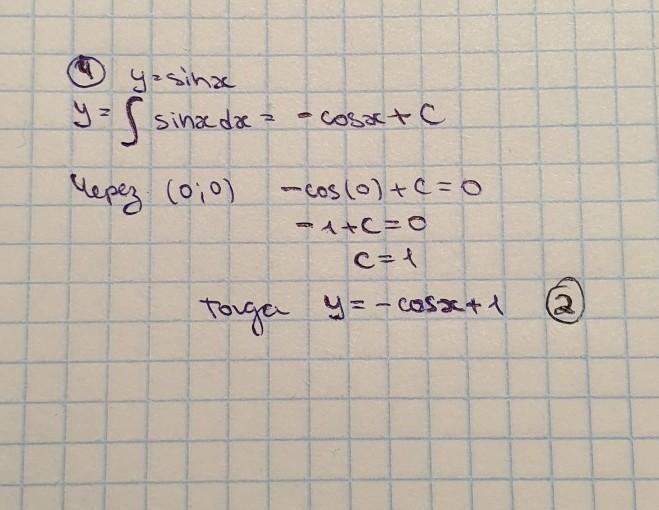 ④ y=sinx
y=∫ sinxdx= -cosx+C
Через (0;0) -cos(0)+C=0
-1+C=0
C=1
тогда y=-cosx+1 ②